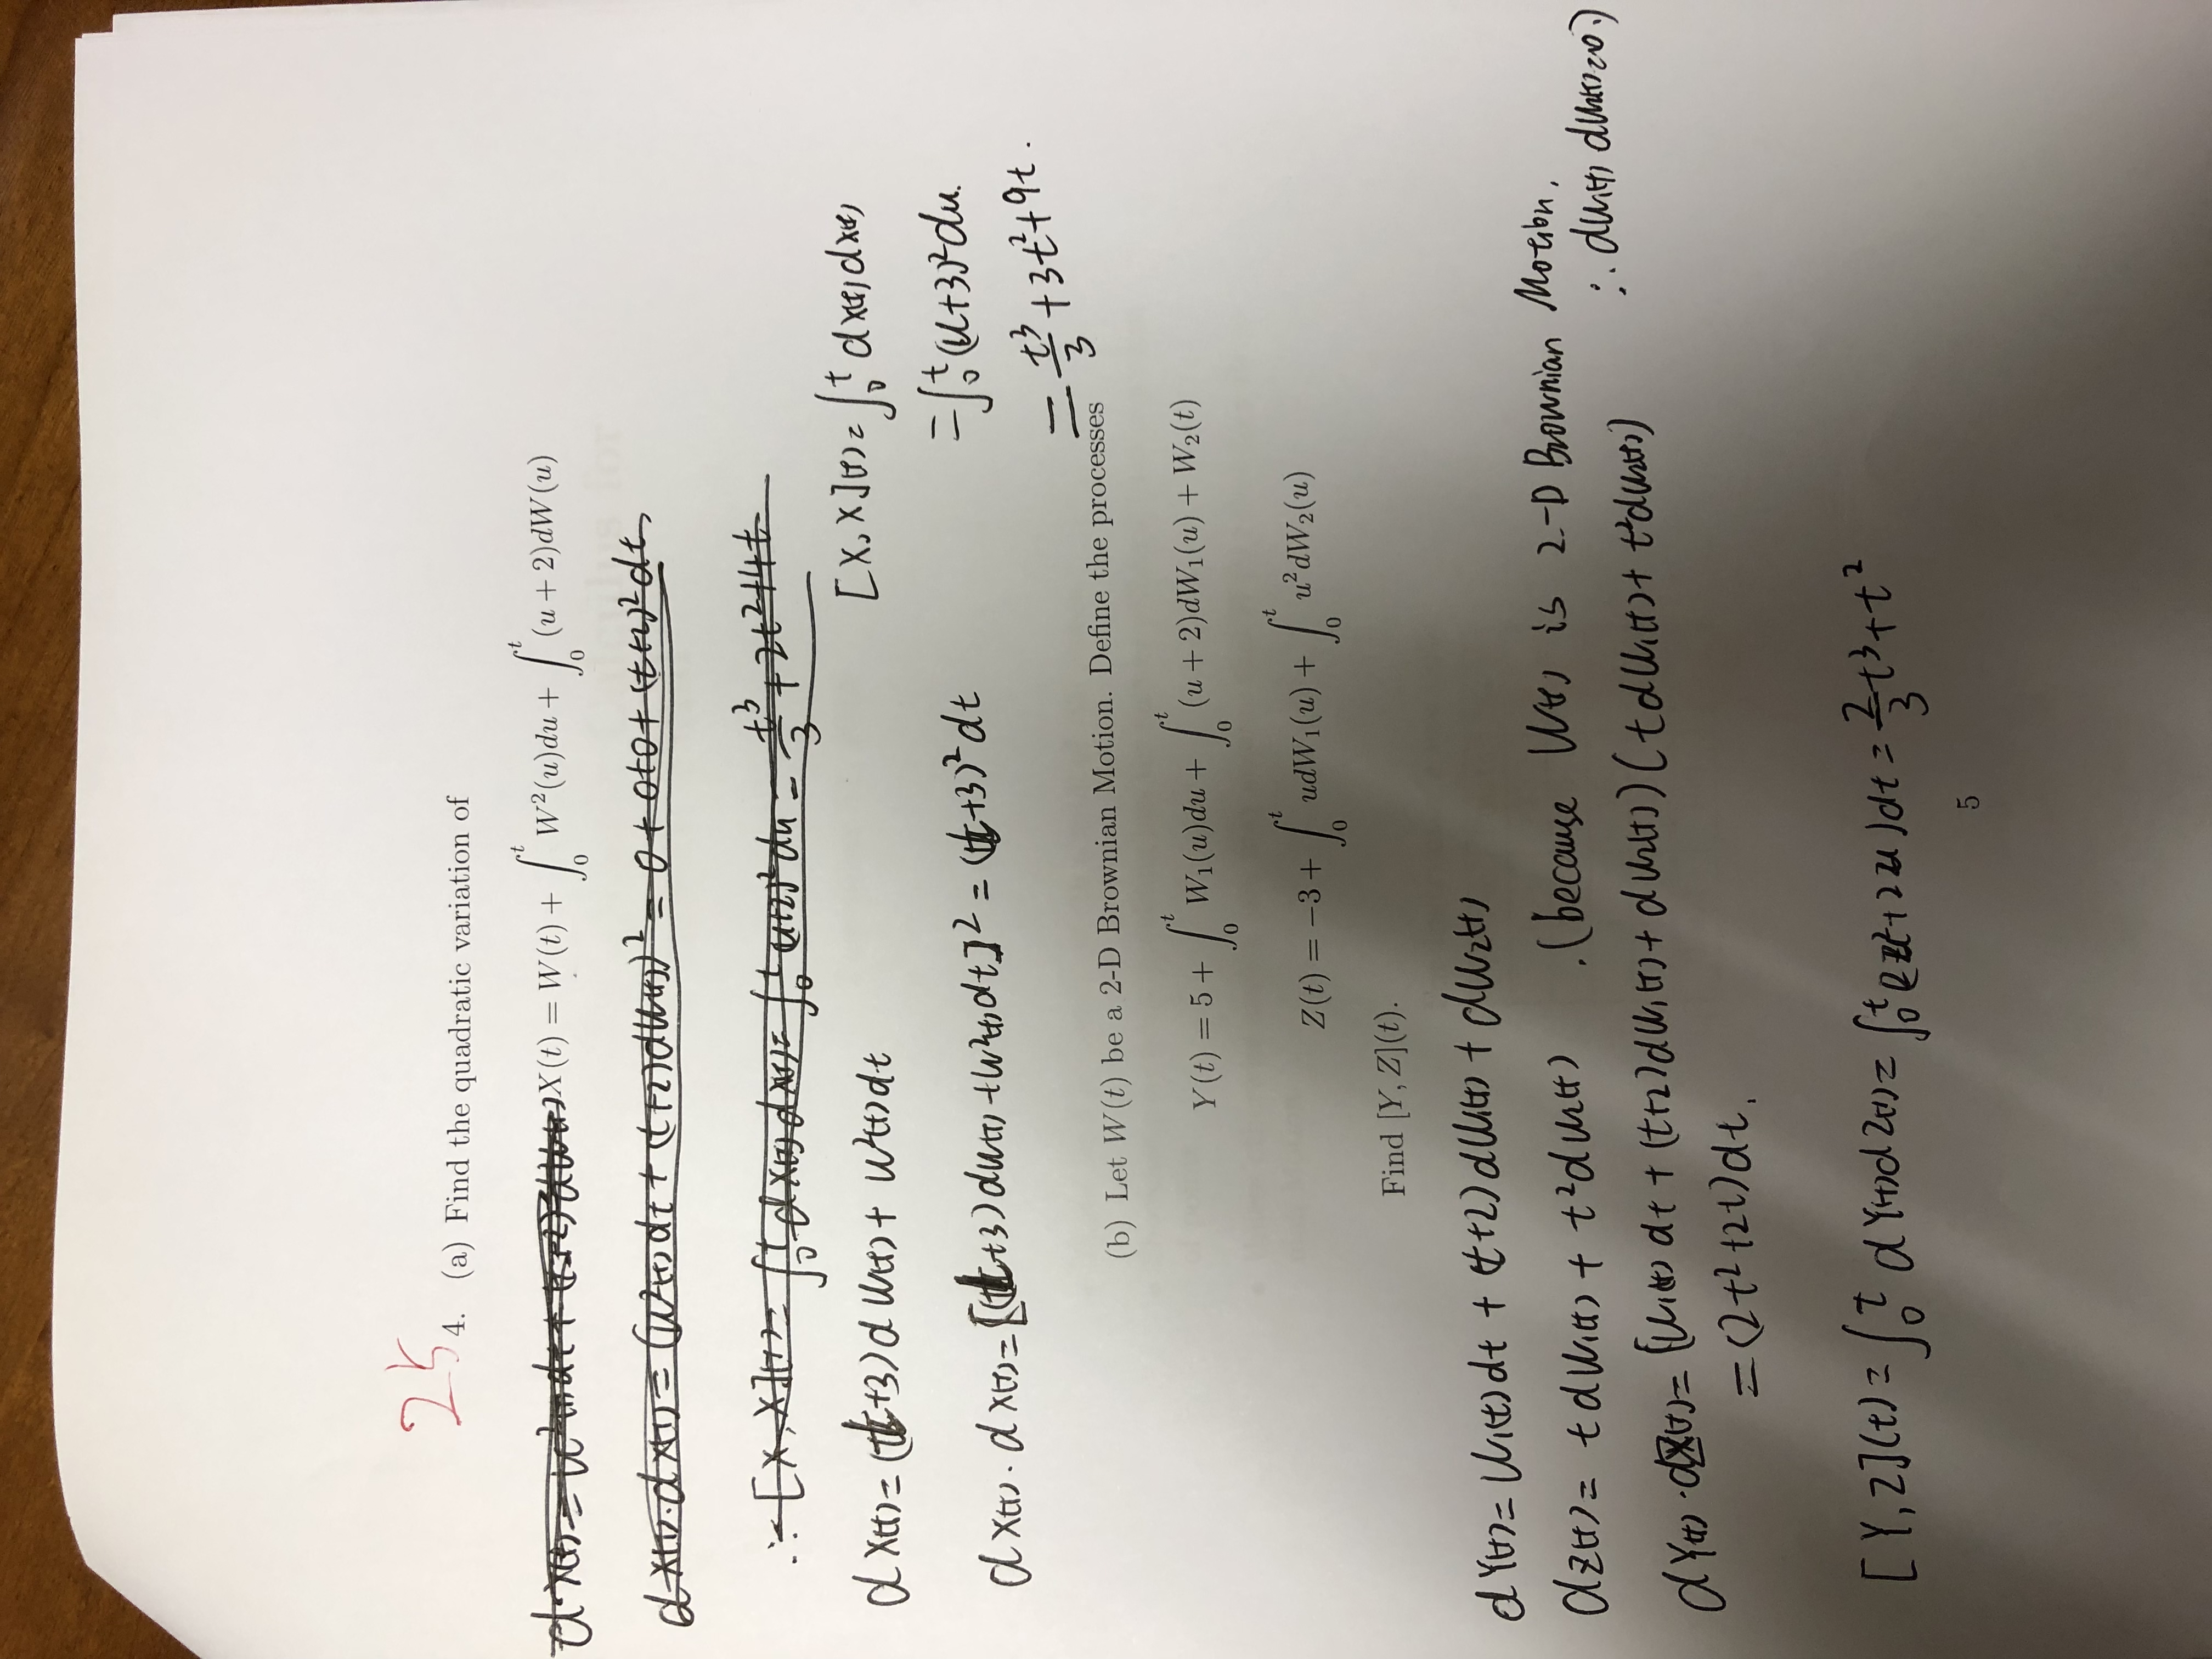 25
4. (a) Find the quadratic variation of
dX(t) = W²(t)dt + (t+2)dW(t)
X(t) = W(t) + ∫₀ᵗ W²(u)du + ∫₀ᵗ (u + 2)dW(u)
dX(t)·dX(t) = (W²(t)dt + (t+2)dW(t))² = 0 + 0+0 + (t+2)²dt,
∴ [X, X](t) = ∫₀ᵗ dX(t) dX(t) = ∫₀ᵗ (u+2)² du = t³/3 + 2t²+4t
dX(t) = (t+3) dW(t) + W²(t)dt
[X, X](t) = ∫₀ᵗ dX(t) dX(t)
dX(t)·dX(t) = [(t+3)dW(t) + W²(t)dt]² = (t+3)² dt
= ∫₀ᵗ (u+3)² du.
= t³/3 + 3t² + 9t.
(b) Let W(t) be a 2-D Brownian Motion. Define the processes
Y(t) = 5 + ∫₀ᵗ W₁(u)du + ∫₀ᵗ (u + 2)dW₁(u) + W₂(t)
Z(t) = −3 + ∫₀ᵗ udW₁(u) + ∫₀ᵗ u²dW₂(u)
Find [Y, Z](t).
dY(t) = W₁(t)dt + (t+2)dW₁(t) + dW₂(t)
dZ(t) = t dW₁(t) + t²dW₂(t) .(because W(t) is 2-D Brownian Motion,
∴ dW₁(t) dW₂(t)=0.)
dY(t)·dZ(t) = (W₁(t) dt + (t+2)dW₁(t) + dW₂(t)) (t dW₁(t) + t²dW₂(t))
= (2t²+2t)dt.
[Y, Z](t) = ∫₀ᵗ dY(t)dZ(t) = ∫₀ᵗ (2u²+2u)dt = 2/3 t³ + t²
5